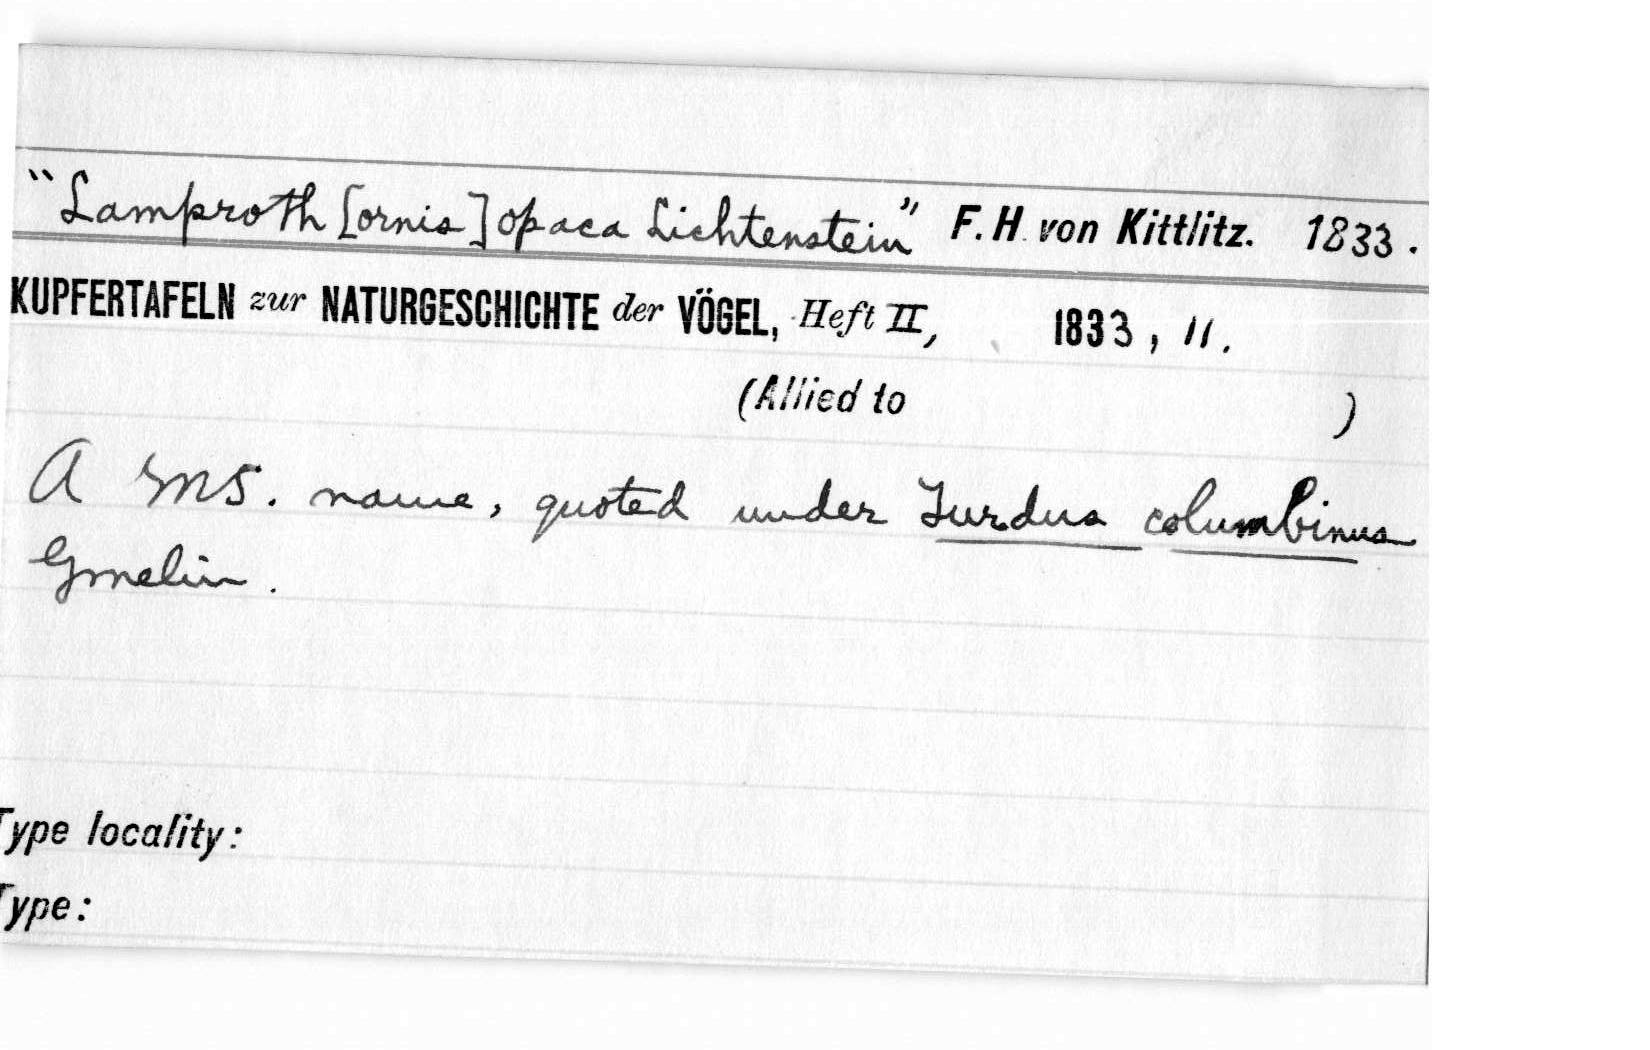 "Lamproth [ornis] opaca Lichtenstein" F. H. von Kittlitz. 1833.
KUPFERTAFELN zur NATURGESCHICHTE der VÖGEL, Heft II, 1833, 11.
(Allied to )
A MS. name, quoted under Turdus columbinus
Gmelin.
Type locality:
Type: